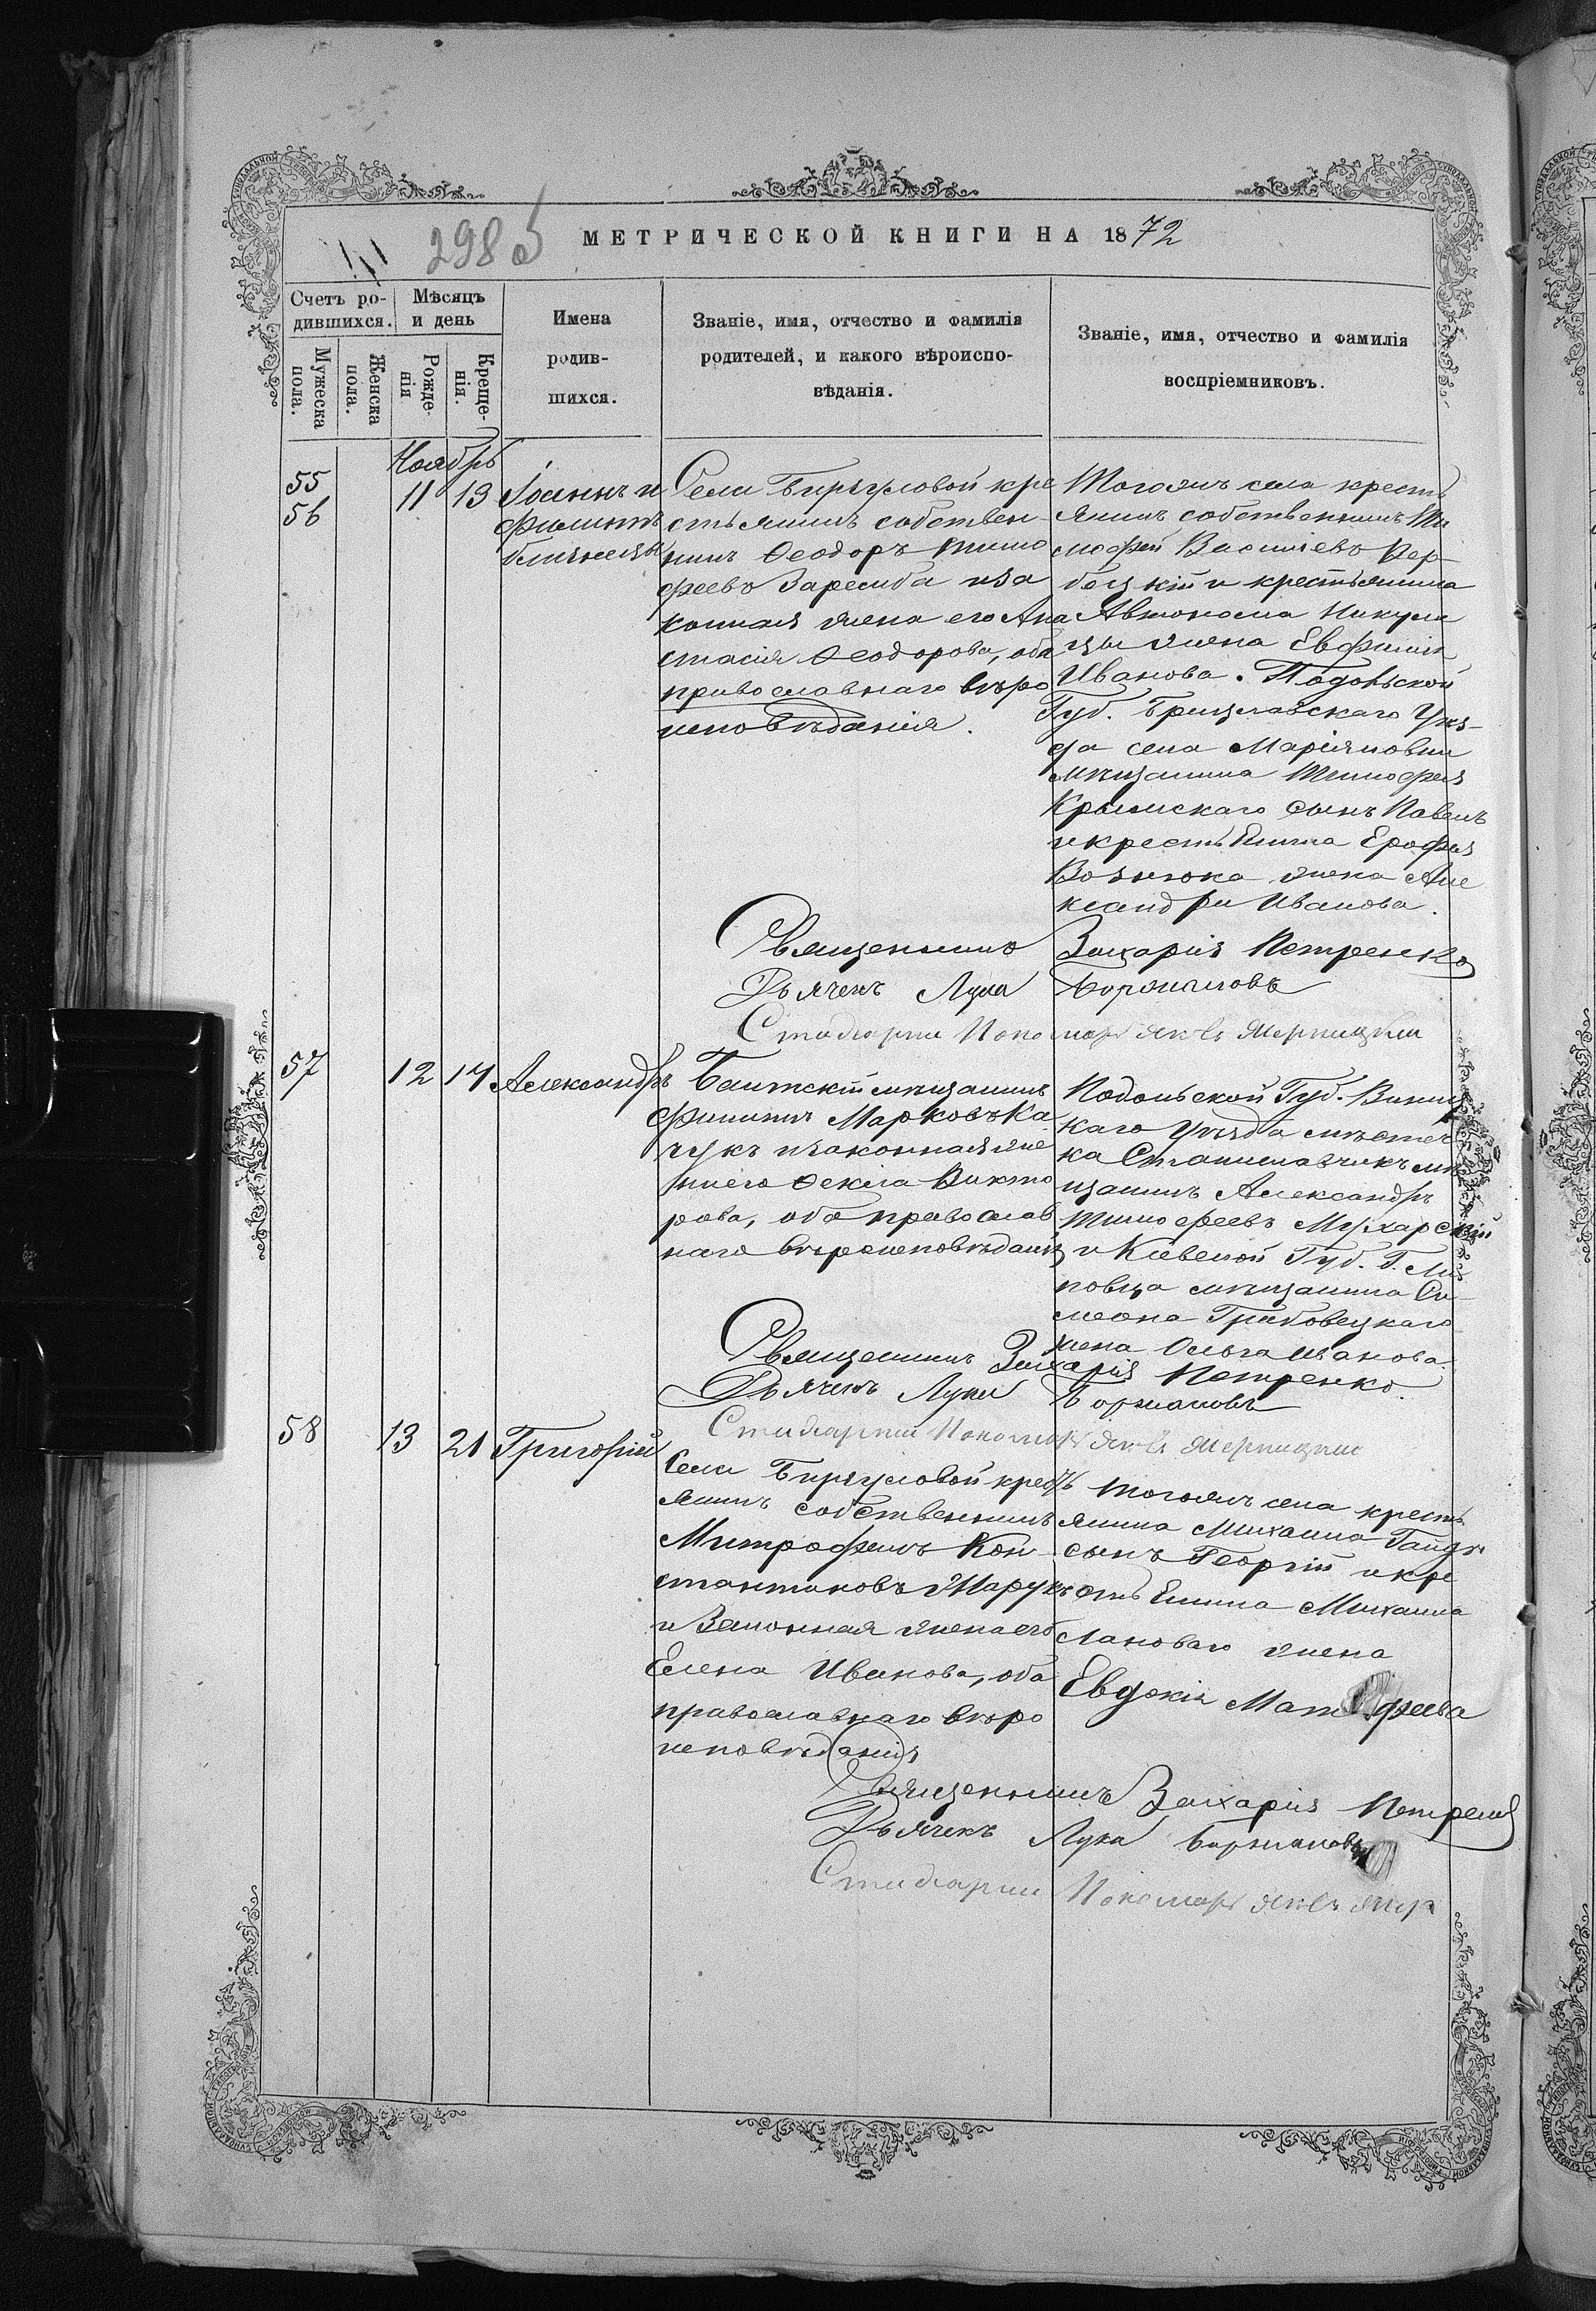 298 об
МЕТРИЧЕСКОЙ КНИГИ НА 1872
Счетъ ро-
дившихся.
Мужеска
пола.
Женска
пола.
Мѣсяцъ
и день
Рожде-
нія
Креще-
нія.
Имена
родив-
шихся.
Званіе, имя, отчество и фамилія
родителей, и какого вѣроиспо-
вѣданія.
Званіе, имя, отчество и фамилія
воспріемниковъ.
Ноябрь
55
56
11
13
Іоаннъ и
Филиппъ
близнецы
Села Бирзуловой кре
стьянинъ собствен-
никъ Ѳеодоръ Тимо
феевъ Заремба и за
конная жена его Ана
стасія Ѳеодорова, оба
православнаго вѣро
исповѣданія.
Тогожъ села кресть
янинъ собственникъ Ти
мофей Василіевъ Вер-
бецкій и крестьянина
Автонома Никули
цы жена Евфимія
Иванова. Подольской
Губ. Брацлавскаго Уѣз-
да села Маріяновки
мѣщанина Тимофея
Крымскаго сынъ Павелъ
и крестьянина Ерофея
Вознюка жена Але
ксандра Иванова.
Священникъ Захарія Петренко
Дьячекъ Лука Боржановъ
Стихарный Пономарь Яковъ
57
12
17
Александръ
Балтскій мѣщанинъ
Филиппъ Марковъ Ка
чукъ и законная же
на его Ѳекла Викто
рова, оба православ
наго вѣроисповѣданія
Подольской Губ. Винниц
каго Уѣзда мѣстеч
ка Станиславчикъ мѣ
щанинъ Александръ
Тимофеевъ Мухарскій
и Кіевской Губ. Г. Ли
повца мѣщанина Си
меона Грабовецкаго
жена Ольга Иванова.
Священникъ Захарія Петренко.
Дьячекъ Лука Боржановъ
Стихарный Пономарь Яковъ
58
13
21
Григорій
Села Бирзуловой кресть
янинъ собственникъ
Митрофанъ Кон
стантиновъ Марукъ
и Законная жена его
Елена Иванова, оба
православнаго вѣро
исповѣданія
Тогожъ села кресть
янина Михаила
сынъ Георгій и кре
стьянина Михаила
жена
Евдокія Матфеева
Священникъ Захарія Петренко
Дьячекъ Лука Боржановъ
Стихарный Пономарь Яковъ